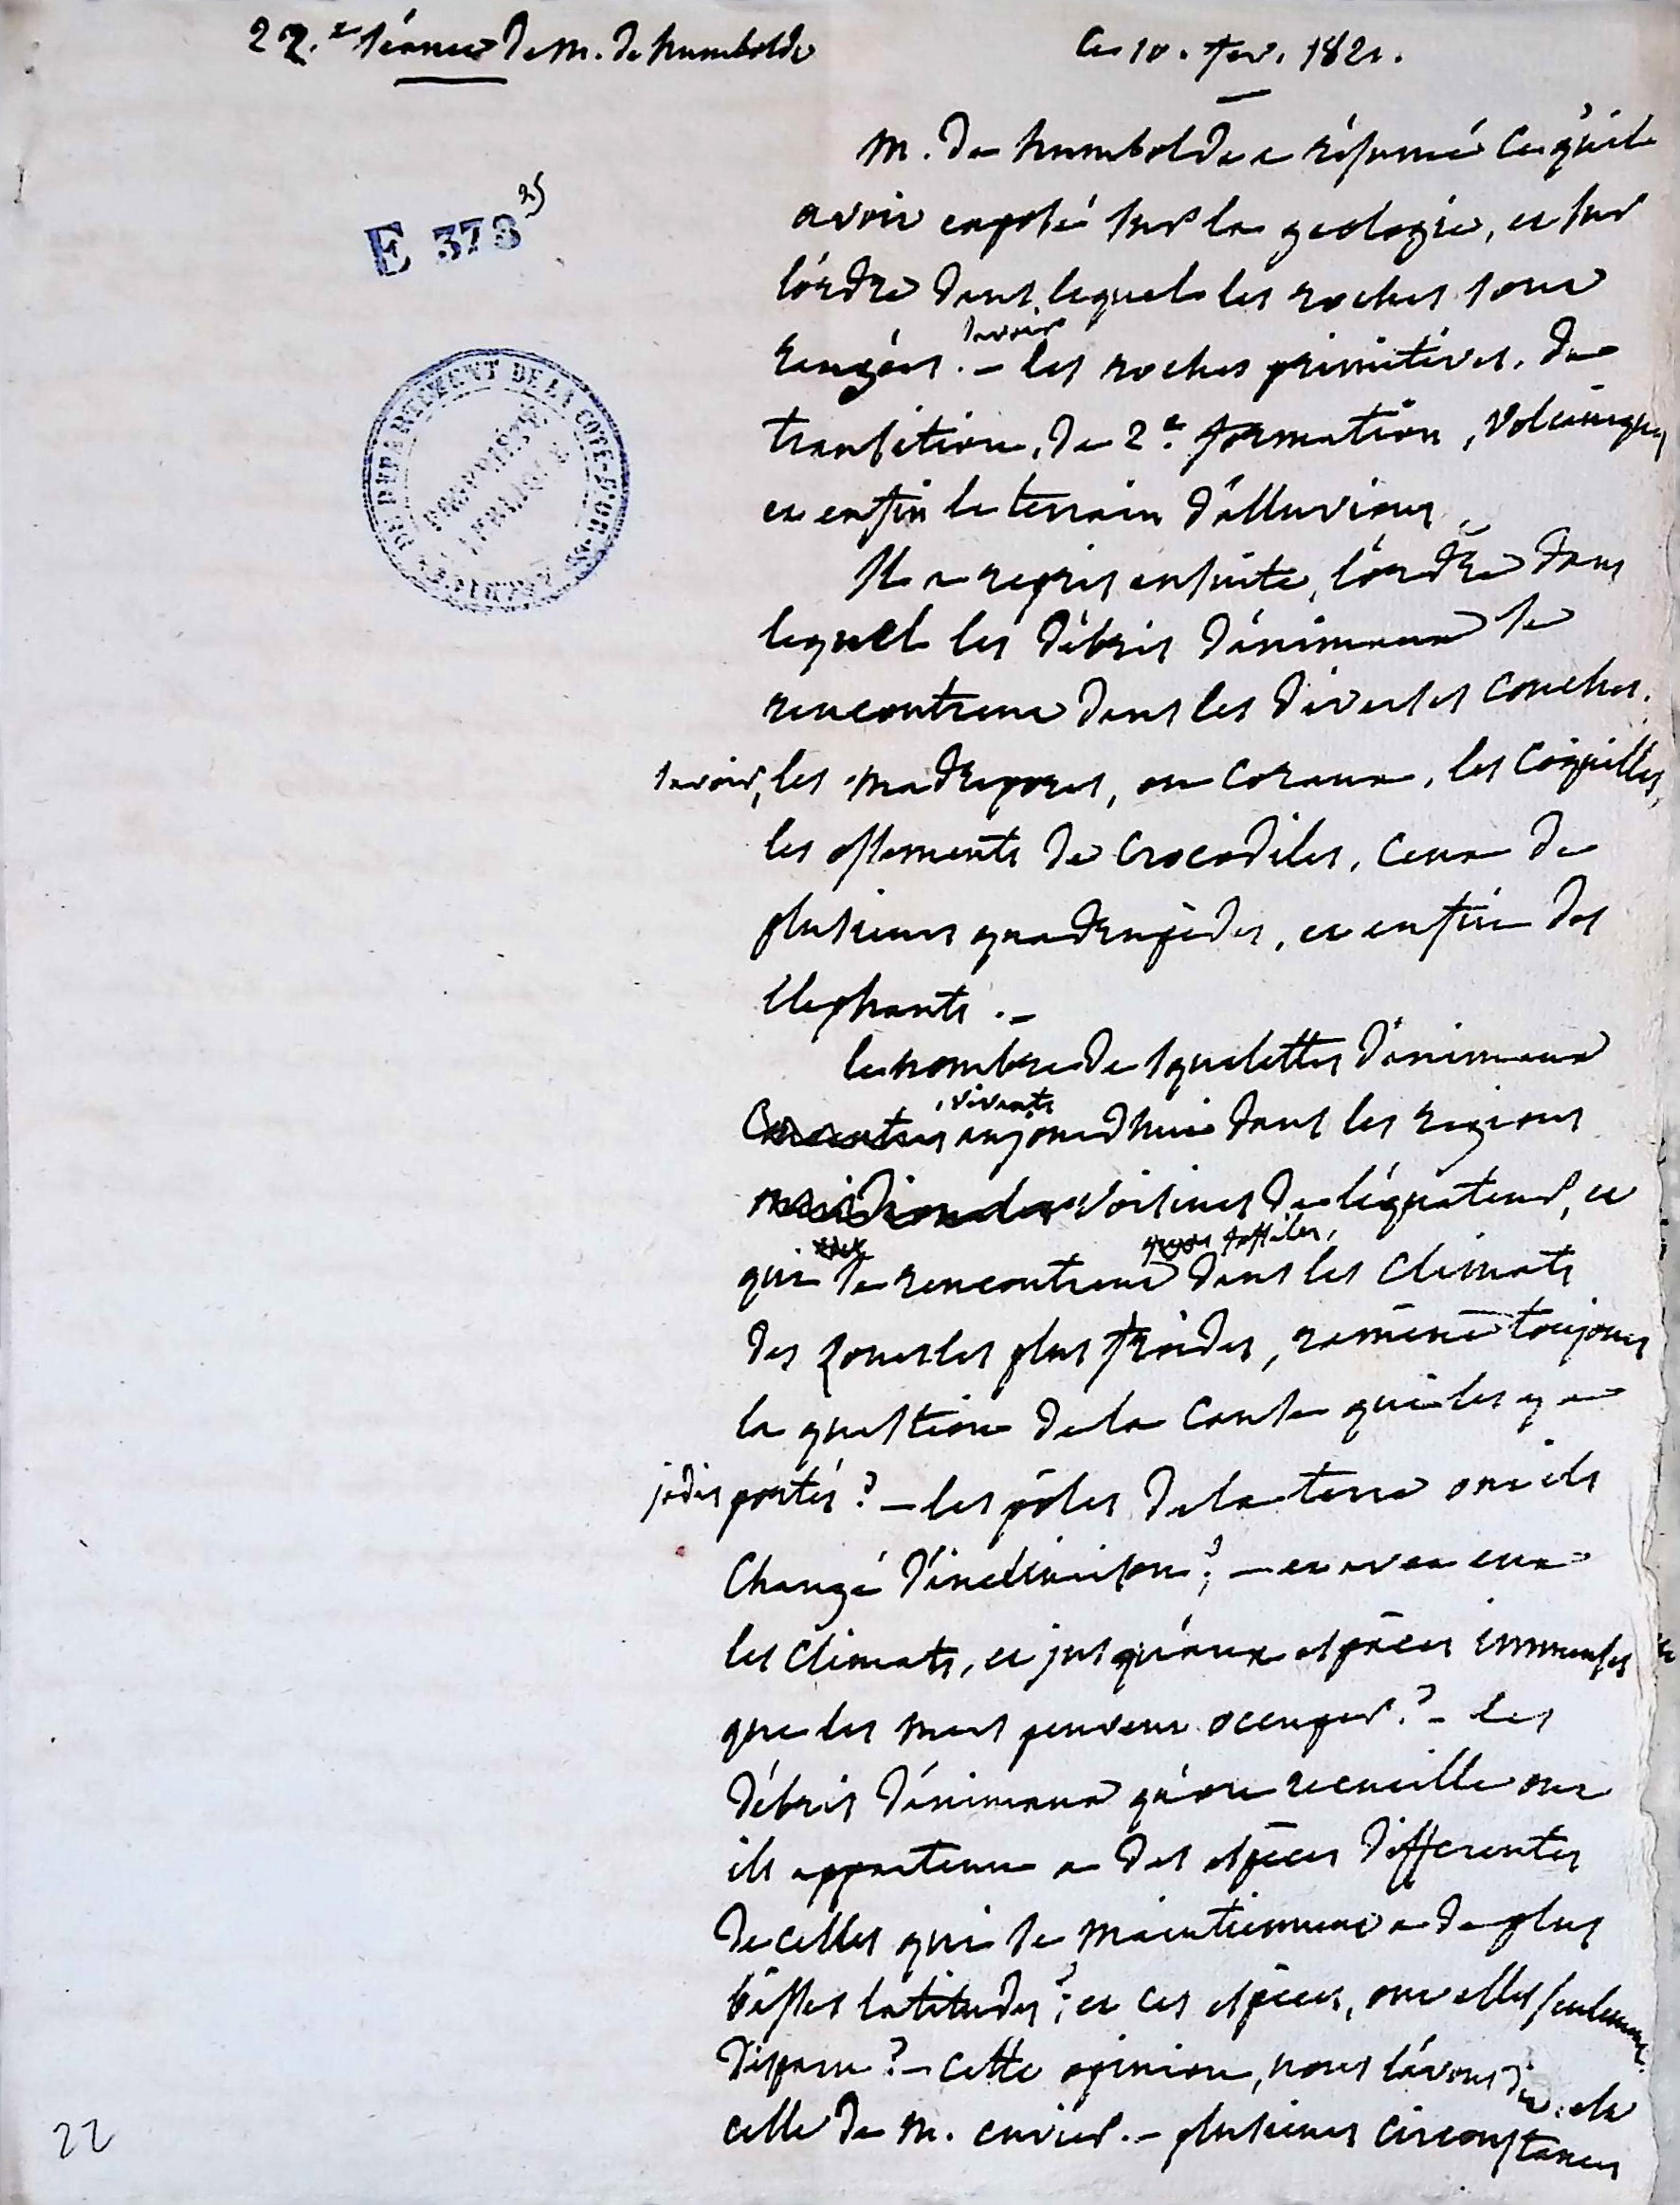 22.e séance de M. de humboldt
ce 10. fev. 1821.
M. de humboldt a résumé ce qu'il
avoit exposé sur la geologie, et sur
l'ordre dans lequel les roches sont
savoir
rangées. – les roches primitives, de
transition, de 2.e formation, volcaniques
et enfin le terrain d'alluvions.
Il a repris ensuite, l'ordre dans
lequel les débris d'animaux se
rencontrent dans les diverses couches.
savoir, les madrepores, ou coraux, les coquilles,
les ossements de crocodiles, ceux de
plusieurs quadrupèdes, et enfin des
elephants. –
le nombre de squelettes d'animaux
vivants
aujourd'hui dans les regions
meridionales voisines de l'équateur, et
fossiles,
qui se rencontrent dans les climats
des zones les plus froides, ramène toujours
la question de la cause qui les y a
jadis portés? – les pôles de la terre ont ils
changé d'inclinaison? – et avec eux
les climats, et jusqu'aux espaces immenses
que les mers peuvent occuper? – les
débris d'animaux qu'on recueille ont
ils appartenu a des espèces differentes
de celles qui se maintiennent a de plus
basses latitudes? et ces espèces, ont elles seulement
disparu? – cette opinion, nous l'avons dit, est
celle de M. cuvier. – plusieurs circonstances
22
E 378 25
DU DEPARTEMENT DE LA COTE-D'OR
ARCHIVES
PROPRIÉTÉ
PUBLIQUE